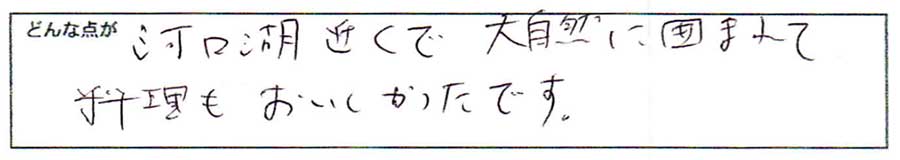 どんな点が 河口湖近くで 大自然に囲まれて
料理も おいしかったです。